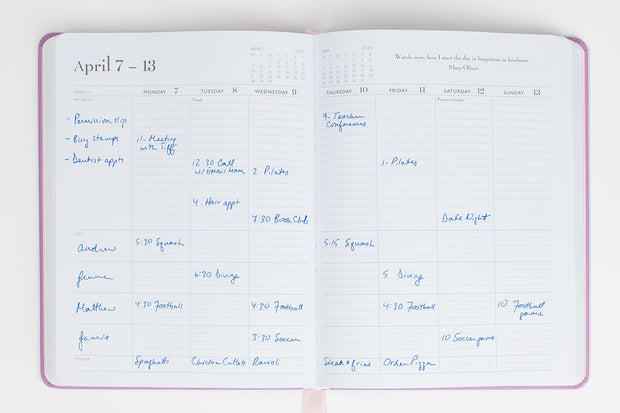 April 7 – 13
APRIL 2025
MAY 2025
Watch, now, how I start the day in happiness, in kindness.
Mary Oliver
MONDAY 7
TUESDAY 8
WEDNESDAY 9
THURSDAY 10
FRIDAY 11
SATURDAY 12
SUNDAY 13
MY WEEK
Passover begins
- Permission slip
- Buy stamps
- Dentist appts.
11 - Meeting
with Tiff
12:30 Call
w/ Email team
4 - Hair appt
2 - Pilates
7:30 Book Club
9 - Teacher
Conferences
1 - Pilates
Date Night
KIDS
Andrew
5:30 Squash
5:15 Squash
6:30 Diving
5 Diving
Matthew
4:30 Football
4:30 Football
4:30 Football
10 Football
game
Jamie
3:30 Soccer
10 Soccer game
DINNER
Spaghetti
Chicken Cutlets
Ravioli
Steak & fries
Order Pizza